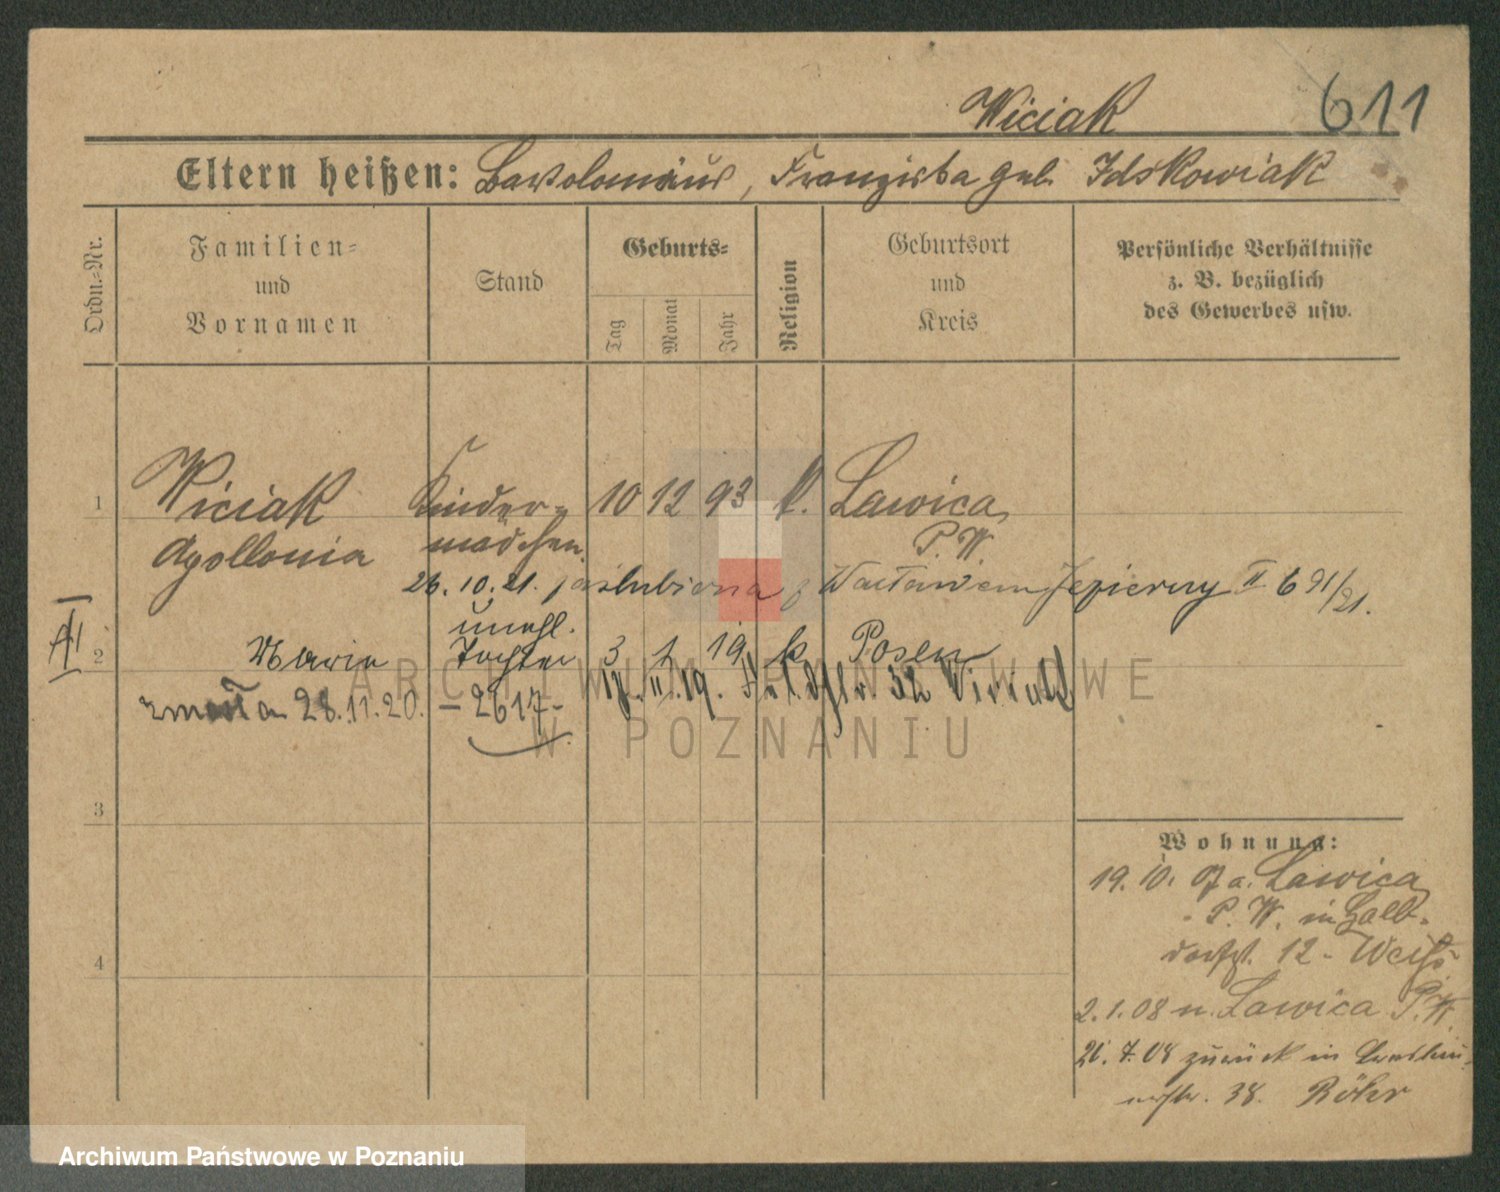 Wiciak 611
Eltern heißen: Bartolomäus, Franziska geb. Idskowiak
Ordn.=Nr.
Familien=
und
Vornamen
Stand
Geburts=
Tag
Monat
Jahr
Religion
Geburtsort
und
Kreis
Persönliche Verhältnisse
z. B. bezüglich
des Gewerbes usw.
1 Wiciak Kinder= 10 12 93 k. Lawica
Apollonia mädchen P. W.
26.10.21. poślubiona z Wacławem Jezierny II 691/21.
unehl.
2 Marie Tochter 3 1 19 k Posen
zmarła 28.11.20. –2617– 17. II. 19. 32 Wiciak
ARCHIWUM PAŃSTWOWE
W POZNANIU
3
4
Wohnung:
19. 10. 07 a. Lawica
P. W. in Halb-
dorfst. 12 - Weiß
2.1.08 n. Lawica P. W.
21.7.08 zurück in
38. Röhr
Archiwum Państwowe w Poznaniu